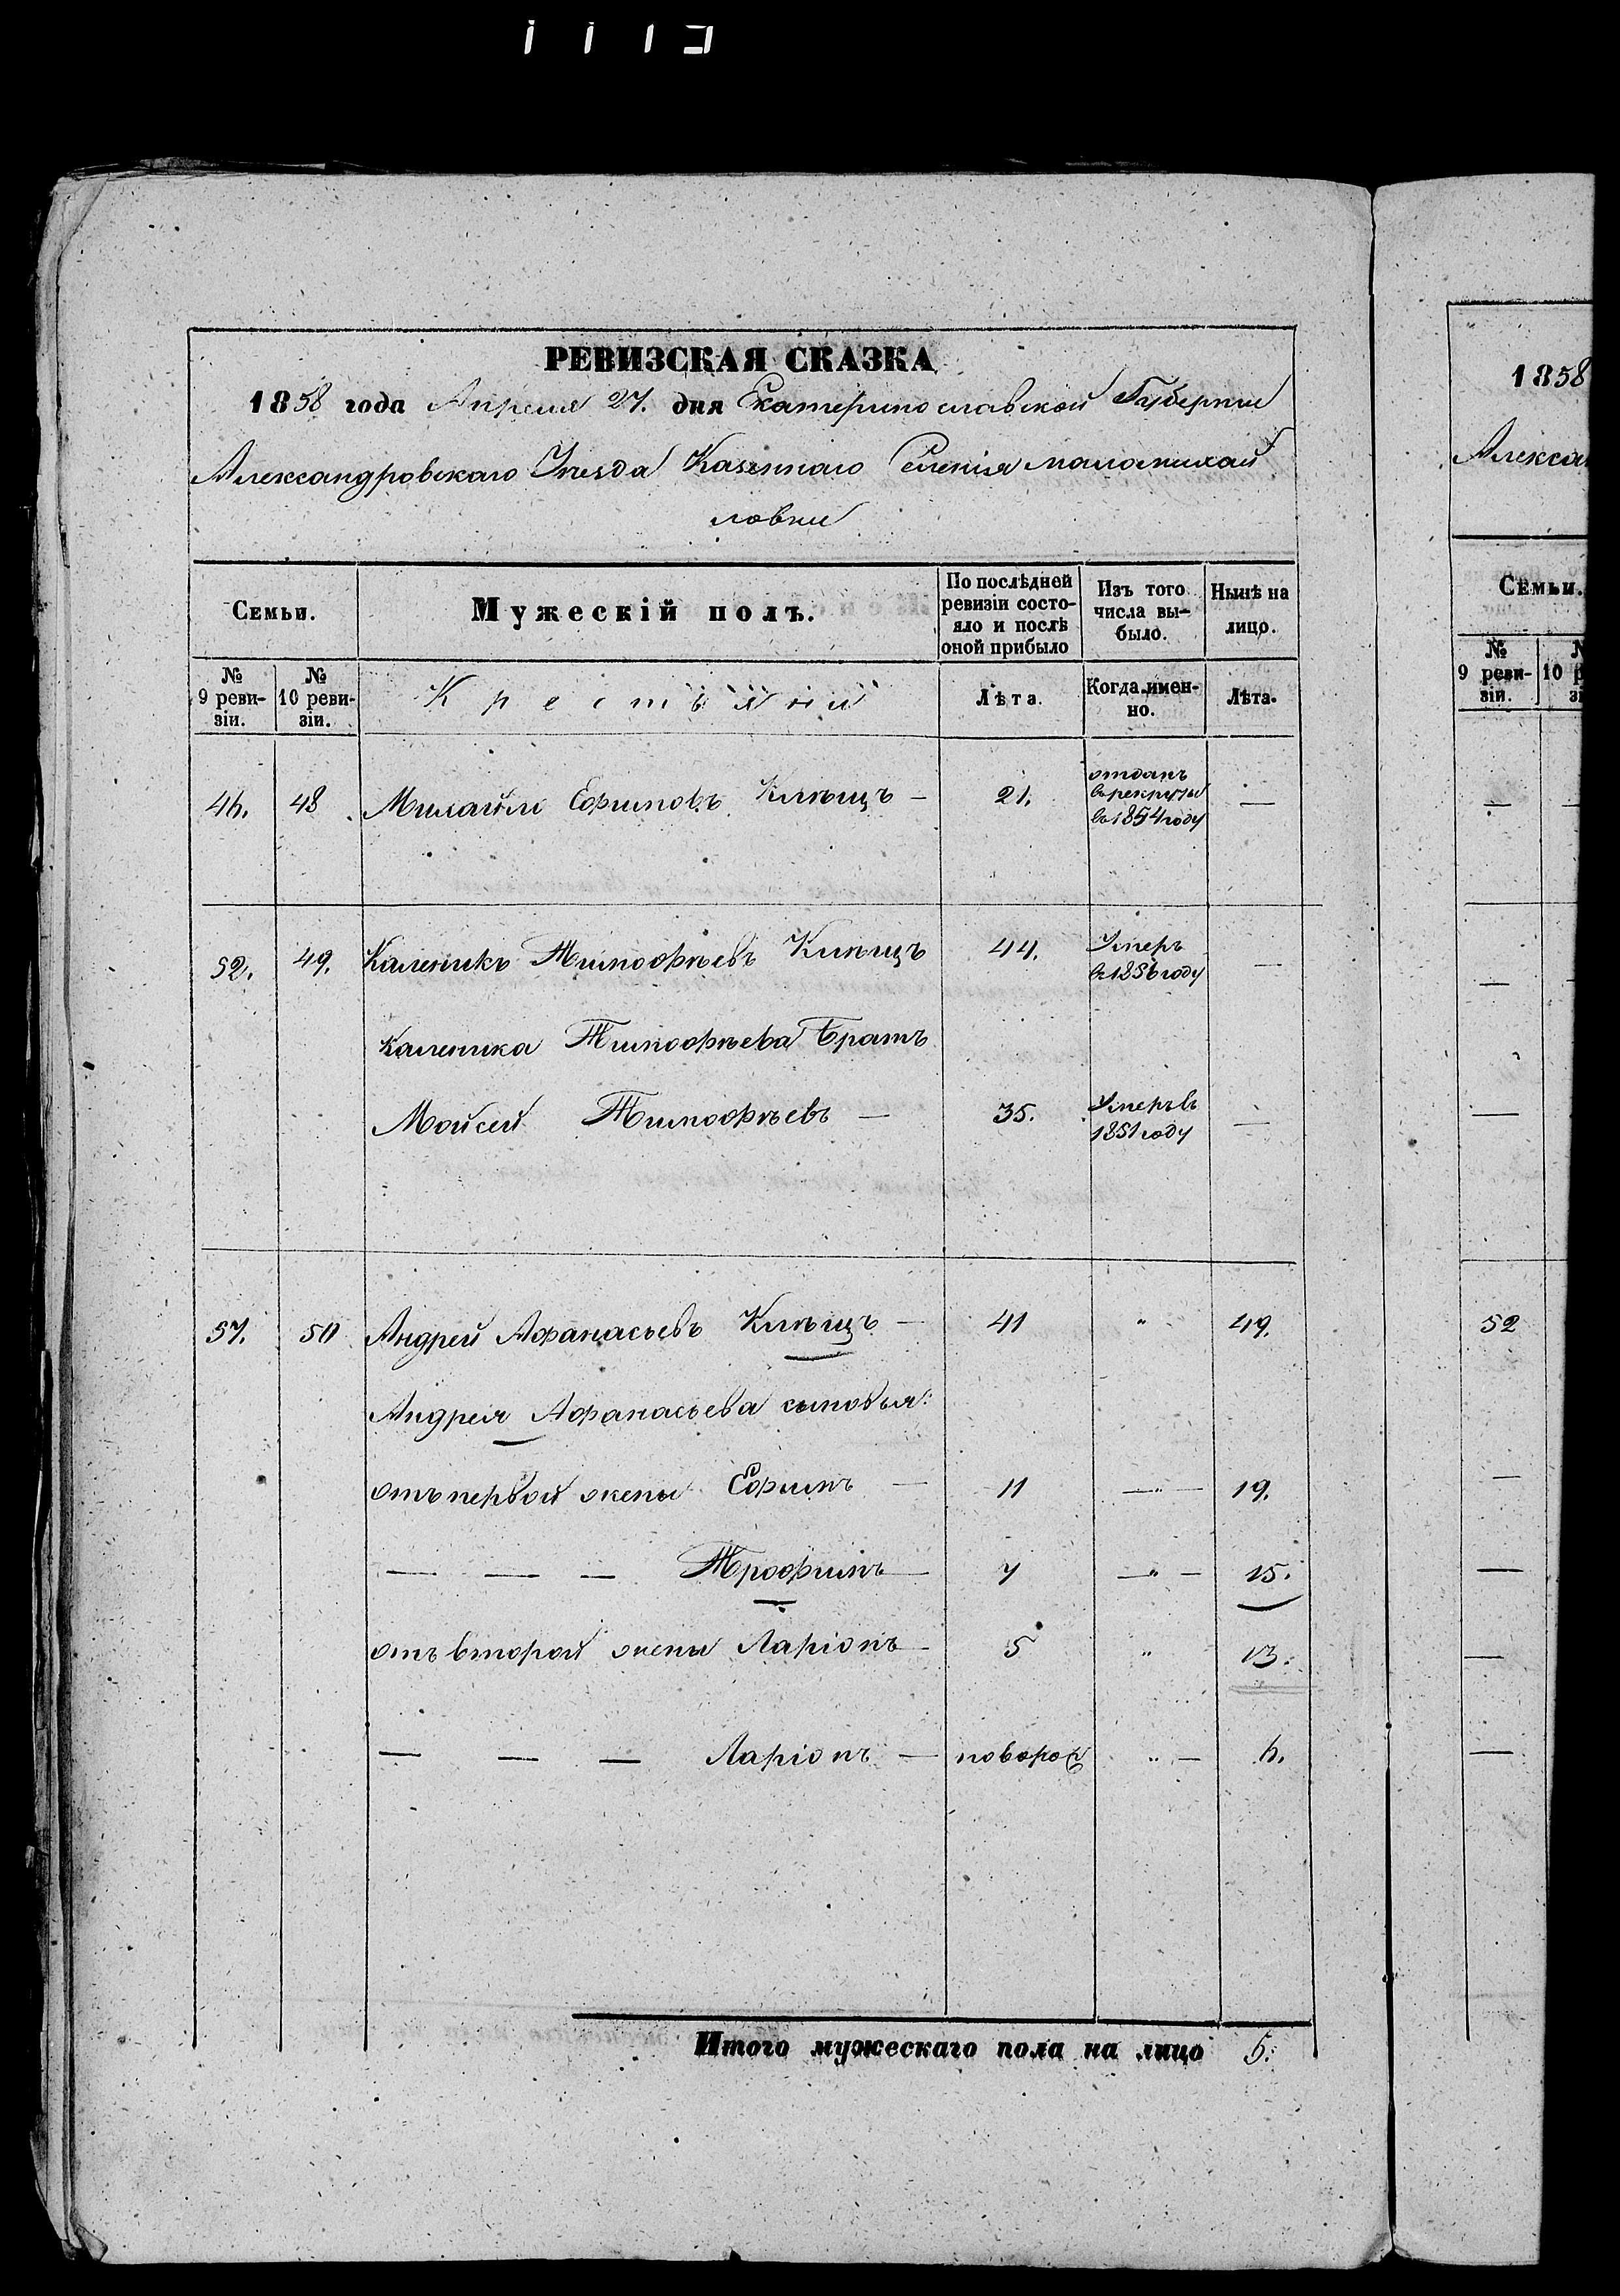 РЕВИЗСКАЯ СКАЗКА
1858 года Апреля 27. дня Екатеринославской Губернии
Александровскаго Уезда Казеннаго Селенія маломихай
ловки
Семьи.
Мужескій полъ.
По послѣдней ревизіи состо-
яло и послѣ
оной прибыло
Изъ того
числа вы-
было.
Нынѣ на
лицо.
№
9 реви-
зіи.
№
10 реви-
зіи.
Крестьяне
Лѣта.
Когда имен-
но.
Лѣта.
46. 48 Михайло Ефимовъ Клѣщъ — 21. отданъ
в рекруты
в 1854 году —
52. 49. Каленикъ Тимофѣевъ Клѣщъ 44. Умеръ
в 1856 году —
Каленика Тимофѣева Братъ
Мойсей Тимофѣевъ — 35. Умеръ в
1851 году —
57. 50 Андрей Афанасьевъ Клѣщъ — 41 " 49.
Андрея Афанасьева сыновья:
отъ первой жены Ефимъ — 11 — " — 19.
— — — Трофимъ — 7 — " — 15.
отъ второй жены Ларіонъ — 5 " 13.
— — — Ларіонъ — новорож " — 6.
Итого мужескаго пола на лицо 5.
1858
Алекса
Семьи.
№
9 реви-
зіи.
№
10 р
зі
—
—
—
52
—
—
—
—